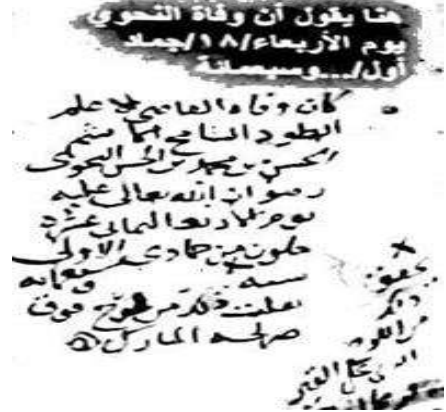 هنا يقول أن وفاة النحوي
يوم الأربعاء/١٨/جماد
أول/...وسبعمائة
كان وفاه القاضي العلامه
الطود الشامخ
الحسن بن محمد بن الحسن النحوي
رضوان الله تعالى عليه
يوم الاربعا الثماني عشره
خلون من جمادى الاولى
سنه وسبعمائه
نقلت ذلك من لوح فوق
ضريحه المبارك
يحقق
ذلك
من اللوح
الذي على القبر